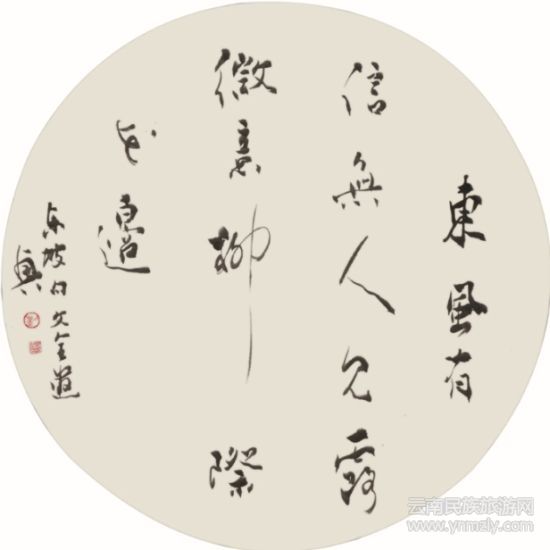 東風有
信無人見露
微意柳際
花邊
東坡句 文全
興
云南民族旅游网
www.ynmzly.com